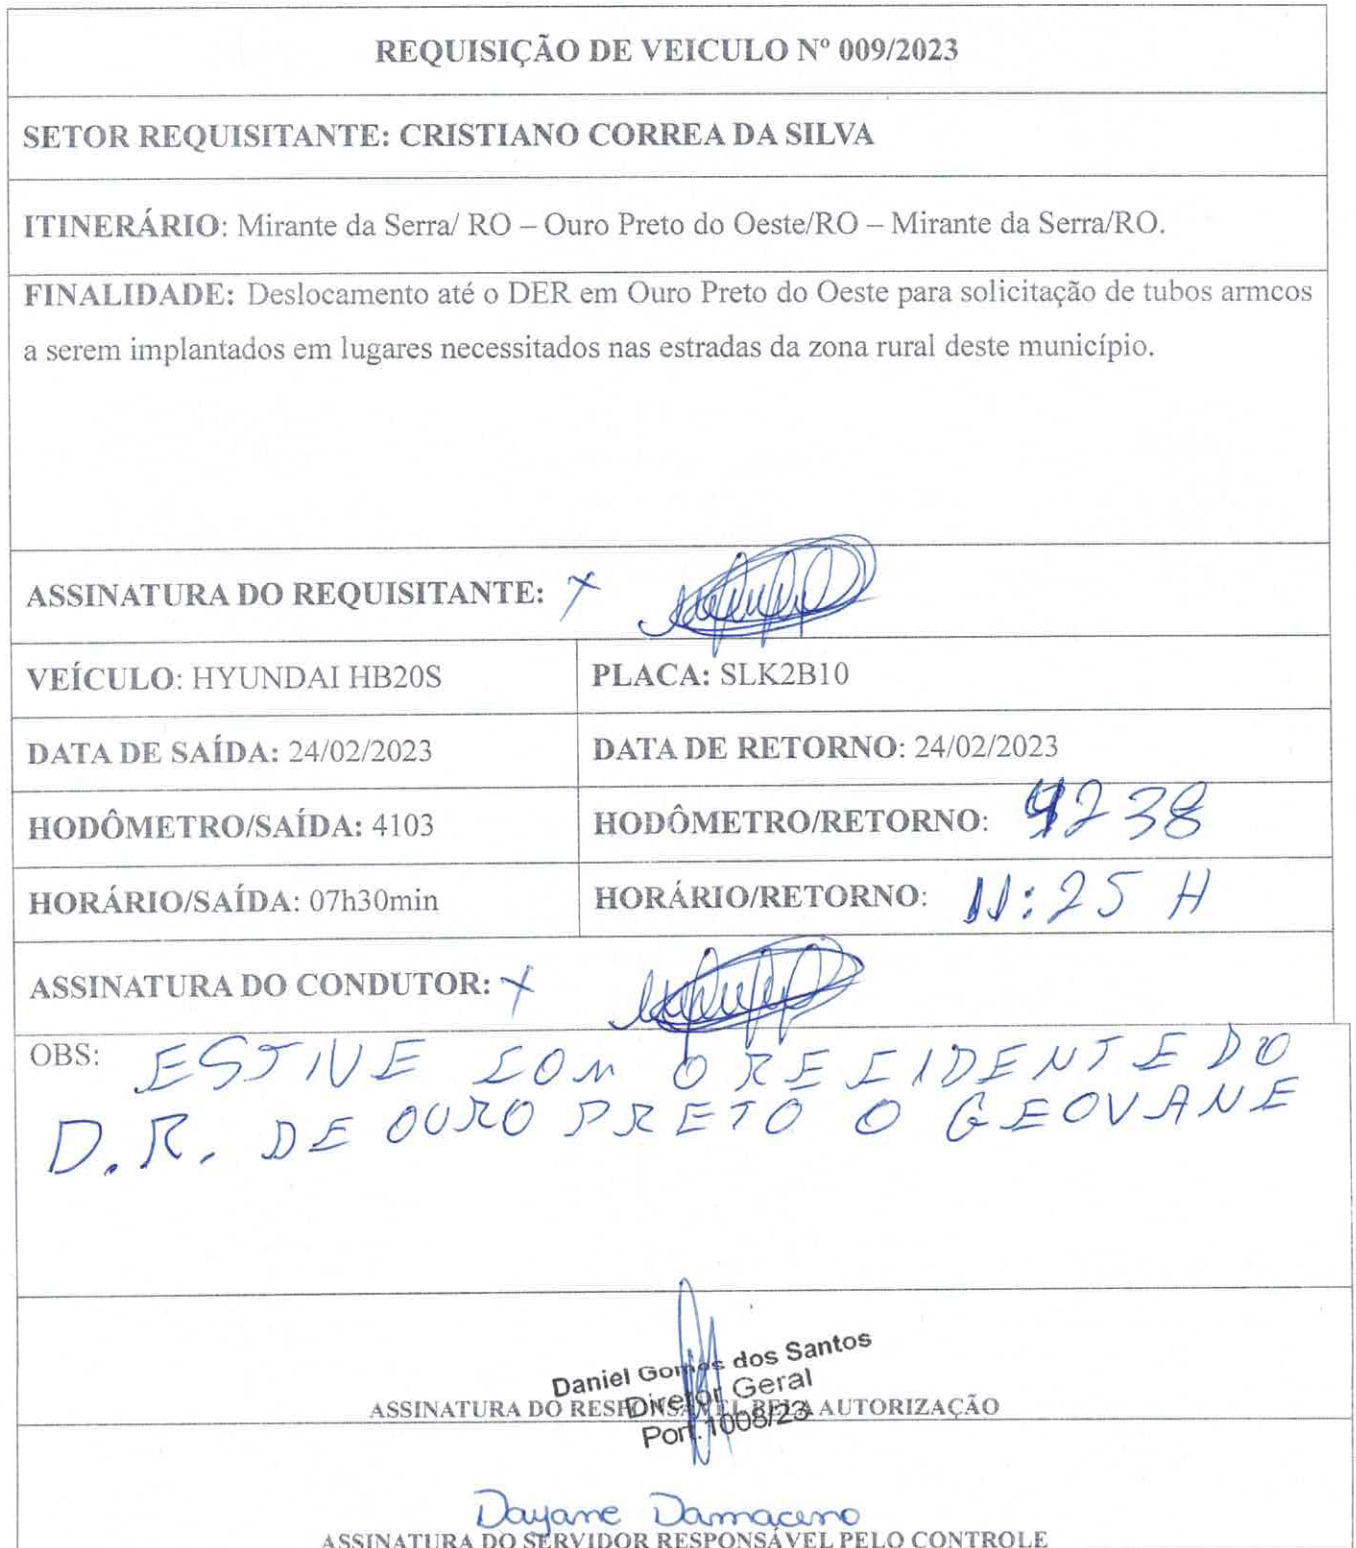 REQUISIÇÃO DE VEICULO Nº 009/2023
SETOR REQUISITANTE: CRISTIANO CORREA DA SILVA
ITINERÁRIO: Mirante da Serra/ RO – Ouro Preto do Oeste/RO – Mirante da Serra/RO.
FINALIDADE: Deslocamento até o DER em Ouro Preto do Oeste para solicitação de tubos armcos
a serem implantados em lugares necessitados nas estradas da zona rural deste município.
ASSINATURA DO REQUISITANTE: X
VEÍCULO: HYUNDAI HB20S PLACA: SLK2B10
DATA DE SAÍDA: 24/02/2023 DATA DE RETORNO: 24/02/2023
HODÔMETRO/SAÍDA: 4103 HODÔMETRO/RETORNO: 4238
HORÁRIO/SAÍDA: 07h30min HORÁRIO/RETORNO: 11:25 H
ASSINATURA DO CONDUTOR: X
OBS: ESTIVE COM O RECIDENTE DO
D.R. DE OURO PRETO O GEOVANE
Daniel Gomes dos Santos
Diretor Geral
ASSINATURA DO RESPONSÁVEL PELA AUTORIZAÇÃO
Port. 1008/23
Dayane Damaceno
ASSINATURA DO SERVIDOR RESPONSÁVEL PELO CONTROLE